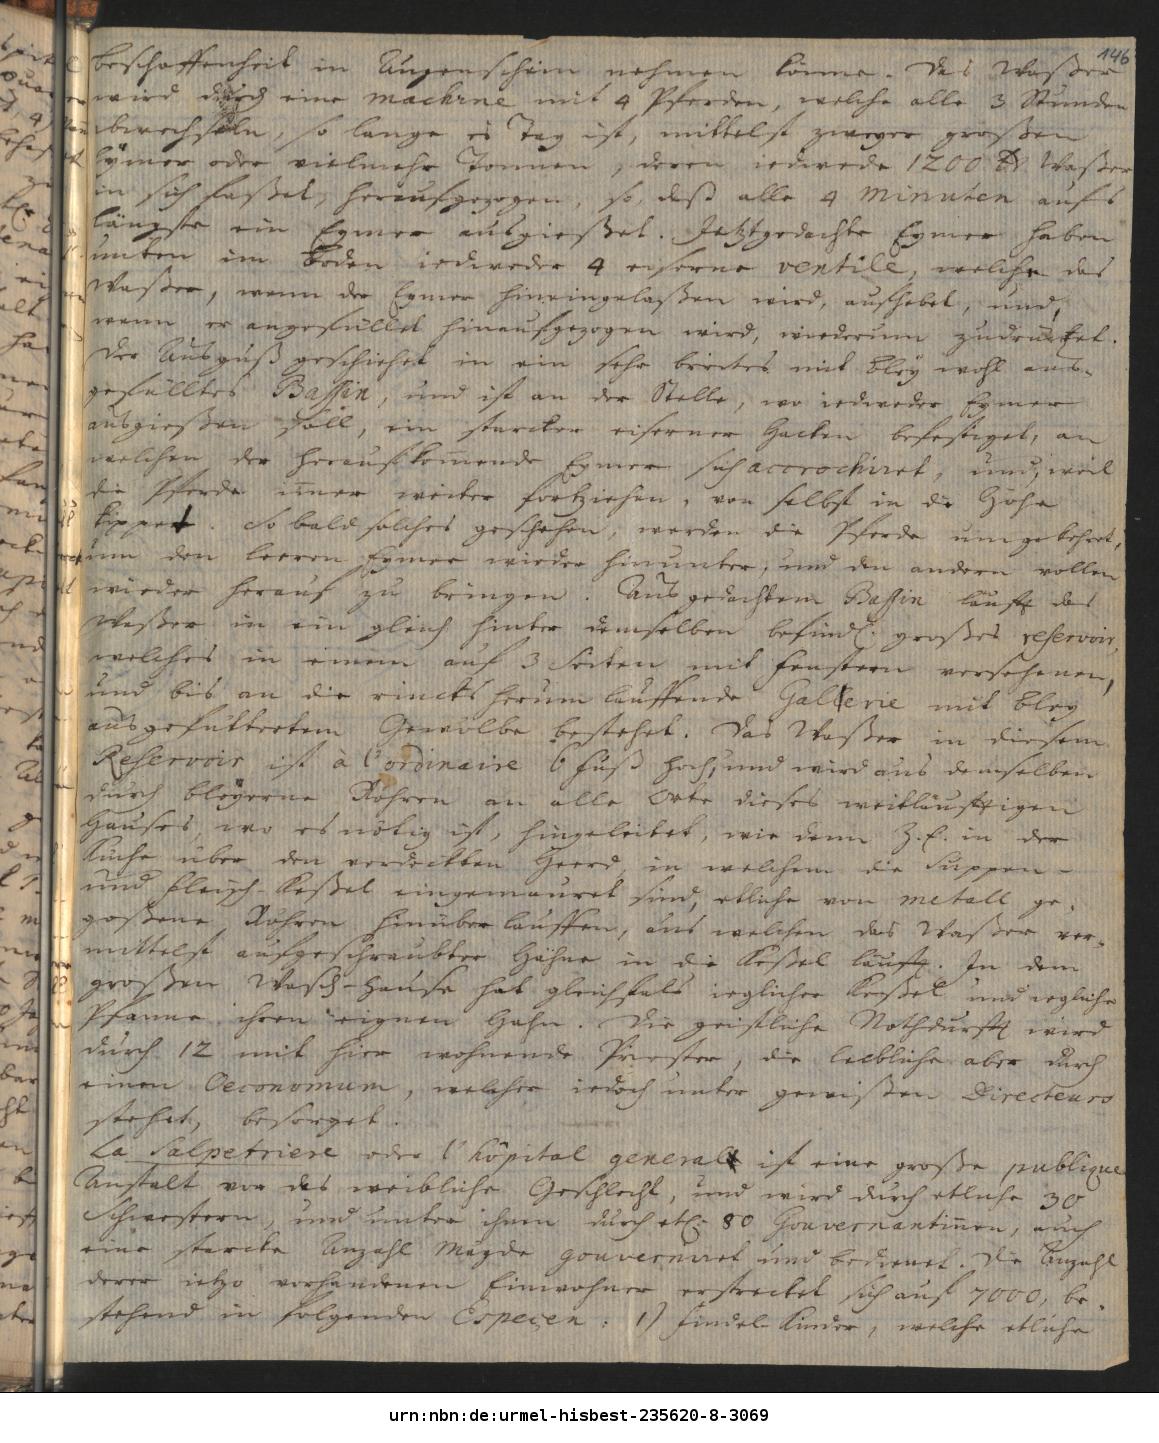 146
beschaffenheit in Augenschein nehmen könne. Das Waßer
wird durch eine machine mit 4 Pferden, welche alle 3 Stunden
abwechseln, so lange es Tag ist, mittelst zweyer großen
Eymer oder vielmehr Tonnen, deren iedwede 1200 ℔ Waßer
in sich faßet, heraufgezogen, so, daß alle 4 Minuten aufs
längste ein Eymer ausgießet. Jetztgedachte Eymer haben
unten im Boden iedweder 4 eiserne ventile, welche das
Waßer, wenn der Eymer hineingelaßen wird, aufhebet, und,
wenn er angefüllet hinaufgezogen wird, wiederum zudrücket.
Der Ausguß geschiehet in ein sehr breites mit Bley wohl aus-
gefülltes Bassin, und ist an der Stelle, wo iedweder Eymer
ausgießen soll, ein starcker eiserner Hacken befestiget, an
welchen der heraufkom̄ende Eymer sich accrochiret, und, weil
die Pferde im̄er weiter fortziehen, von selbst in die Höhe
kippet. So bald solches geschehen, werden die Pferde umgekehret,
um den leeren Eymer wieder hinunter, und den andern vollen
wieder herauf zu bringen. Aus gedachtem Bassin läufft das
Waßer in ein gleich hinter demselben befindl. großes reservoir,
welches in einem auf 3 Seiten mit Fenstern versehenen,
und bis an die rincks herum lauffende Gallerie mit Bley
ausgefuttertem Gewölbe bestehet. Das Waßer in diesem
Reservoir ist à l'ordinaire 6 Fuß hoch, und wird aus demselben
durch bleyerne Röhren an alle Orte dieses weitläufftigen
Hauses, wo es nötig ist, hingeleitet, wie denn Z.E. in der
Küche über den verdeckten Heerd, in welchem die Suppen-
und Fleisch-Keßel eingemauret sind, etliche von metall ge-
goßene Röhren hinüber lauffen, aus welchen das Waßer ver-
mittelst aufgeschraubter Hähne in die Keßel läufft. In dem
großen Wasch-Hause hat gleichfals ieglicher Keßel und iegliche
Pfanne ihren eignen Hahn. Die geistliche Nothdurfft wird
durch 12 mit hier wohnende Priester, die leibliche aber durch
einen Oeconomum, welcher iedoch unter gewißen Directeurs
stehet, besorget.
La Salpetriere oder l'hôpital general ist eine große publique
Anstalt vor das weibliche Geschlecht, und wird durch etliche 30
Schwestern, und unter ihnen durch etl. 80 Gouvernantin̄en, auch
eine starcke Anzahl Mägde gouverniret und bedienet. Die Anzahl
derer ietzo vorhandenen Einwohner erstrecket sich auf 7000, be-
stehend in folgenden Especen: 1) Findel-Kinder, welche etliche
urn:nbn:de:urmel-hisbest-235620-8-3069